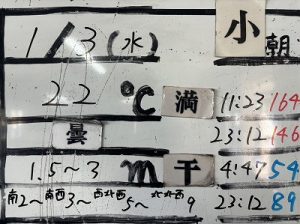 1/3(水) 小
朝
22℃ 満 11:23 164
曇 23:12 146
1.5~3m 干 4:47 54
南2~南西3~西北西5~北北西9 23:12 89